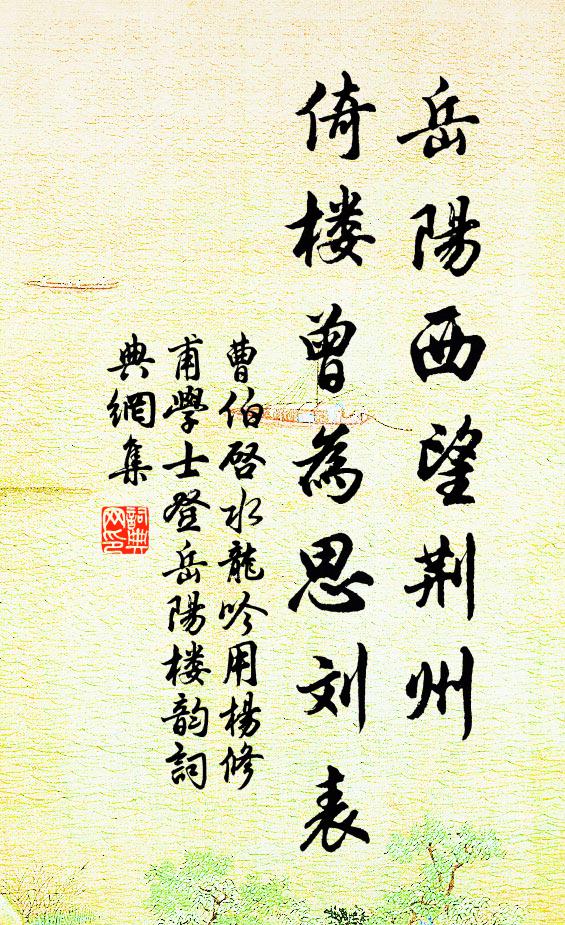 岳陽西望荆州
倚楼曾為思刘表
曹伯啓水龍吟用楊修
甫學士登岳陽楼韵詞
典網集
詞典
网印